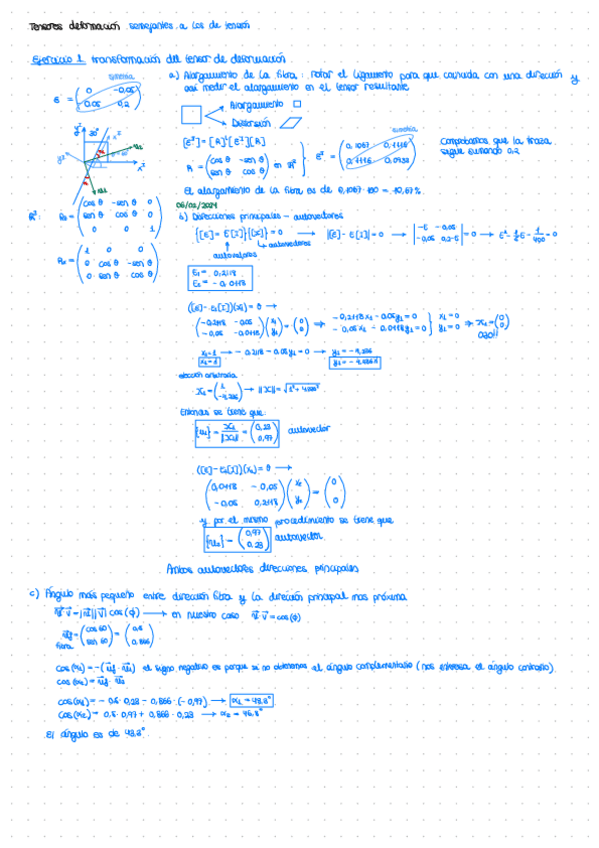 Tensores deformación semejantes a los de tensión
Ejercicio 1 transformación del tensor de deformación
a) Alargamiento de la fibra : rotar el ligamento para que coincida con una dirección y
así medir el alargamiento en el tensor resultante
simetría
ε = (0 -0,05
0,05 0,2)
Alargamiento
Distorsión
[ε²] = [R]ᵗ[ε¹][R]
R = (cos θ -sen θ
sen θ cos θ) en R²
simetría
ε² = (0,1067 0,1118
0,1118 0,0933)
Comprobamos que la traza
sigue sumando 0,2
El alargamiento de la fibra es de 0,1067·100 = 10,67%.
06/02/2024
R³ R₃ = (cos θ -sen θ 0
sen θ cos θ 0
0 0 1)
(1 0 0
0 cos θ -sen θ
0 sen θ cos θ)
b) Direcciones principales - autovectores
autovalores
autovectores
|[ε] - ε[I]| = 0
|-ε -0,05
-0,05 0,2-ε| = 0
ε₁ = 0,2118
ε₂ = -0,0118
([ε] - ε₁[I])(x₁) = 0 →
(-0,2118 -0,05
-0,05 -0,0118)(x₁
y₁) = (0
0)
-0,2118x₁ - 0,05y₁ = 0
-0,05x₁ - 0,0118y₁ = 0
x₁ = 0
y₁ = 0
x₁=1 → -0,2118 - 0,05y₁ = 0 →
elección arbitraria
Entonces se tiene que
{u₁} = x₁/||x₁|| = (0,23
0,97) autovector
([ε] - ε₂[I])(x₂) = 0 →
(0,0118 -0,05
-0,05 0,2118)(x₂
y₂) = (0
0)
y por el mismo procedimiento se tiene que
{u₂} = (0,97
0,23) autovector
Ambos autovectores direcciones principales
c) Ángulo más pequeño entre dirección fibra y la dirección principal mas próxima
u·v = |u||v| cos(φ) → en nuestro caso u·v = cos(φ)
fibra
(cos 60
sen 60) = (0,5
0,866)
cos(α₁) = -(uf·u₁) el signo negativo es porque si no obtenemos el ángulo complementario (nos interesa el ángulo contrario).
cos(α₂) = uf·u₂
cos(α₁) = -0,5·0,23 - 0,866·(-0,97) → α₁ = 43,8°
cos(α₂) = 0,5·0,97 + 0,866·0,23 → α₂ = 46,8°
El ángulo es de 43,8°.